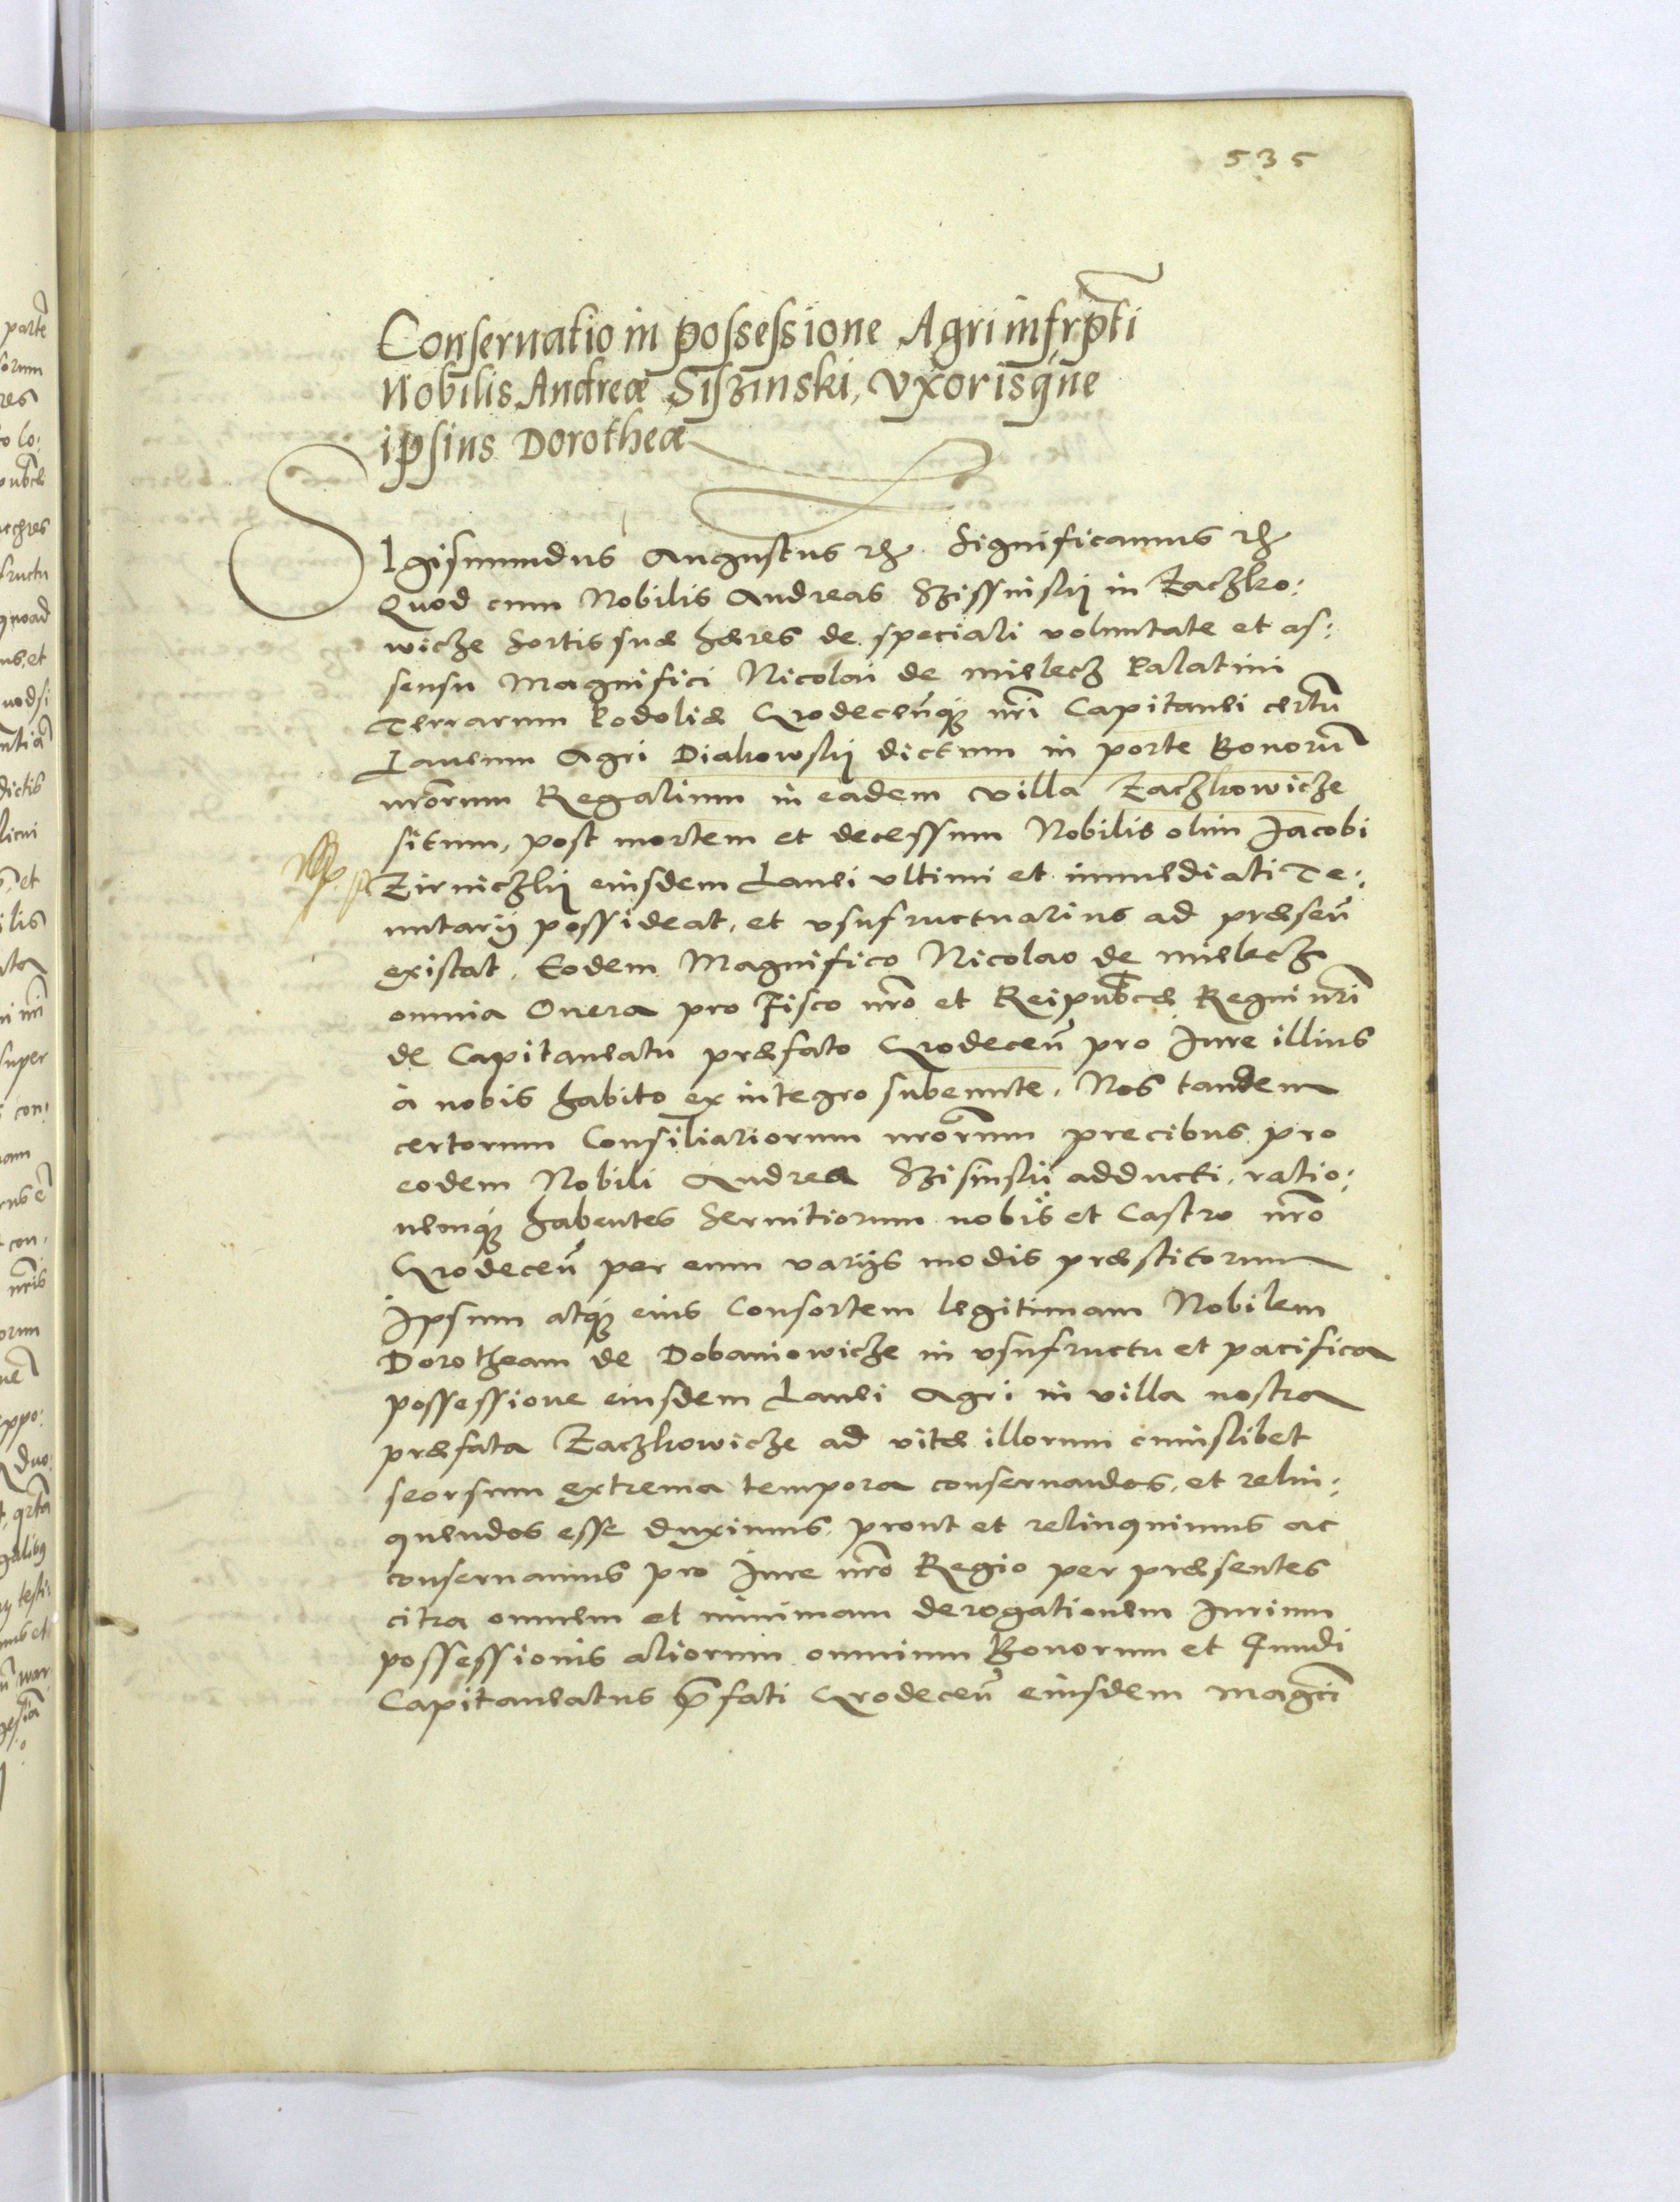 535
Conseruatio in possessione Agri infrpti
Nobilis Andreæ Siszinski, Vxorisque
ipsius Dorotheæ
Sigismundus Augustus etc. Significamus etc.
Quod cum Nobilis Andreas Szissinskij in Zaczko:
wicze Sortis suæ hæres de speciali voluntate et as:
sensu Magnifici Nicolai de Mielecz Palatini
Terrarum Podoliæ Grodecenque nri Capitanei certu
Laneum Agri Diakowskij dictum in parte Bonoru
nrorum Regalium in eadem villa Zaczkowicze
situm, post mortem et decessum Nobilis olim Jacobi
Zirniczkij eiusdem Lanei vltimi et immediati Te:
nutarij possideat, et vsufructuarius ad præsen
existat. Eodem Magnifico Nicolao de Mielecz
omnia Onera pro Fisco nro et Reipublcæ Regni nri
de Capitaneatu præfato Grodecen pro Jure illius
à nobis habito ex integro subeunte. Nos tandem
certorum Consiliariorum nrorum precibus pro
eodem Nobili Andrea Szisinskij adducti, ratio:
nemque habentes Seruitiorum nobis et Castro nro
Grodecen per eum varijs modis præstitorum
Ipsum atque eius Consortem legitimam Nobilem
Dorotheam de Dobaniowicze in vsufructu et pacifica
possessione eiusdem Lanei Agri in villa nostra
præfata Zaczkowicze ad vitæ illorum cuiuslibet
seorsum extrema tempora conseruandos, et relin:
quendos esse duximus, prout et relinquimus ac
conseruamus pro Jure nro Regio per præsentes
citra omnem et minimam derogationem Jurium
possessionis aliorum omnium Bonorum et Fundi
Capitaneatus pfati Grodecen eiusdem Magci